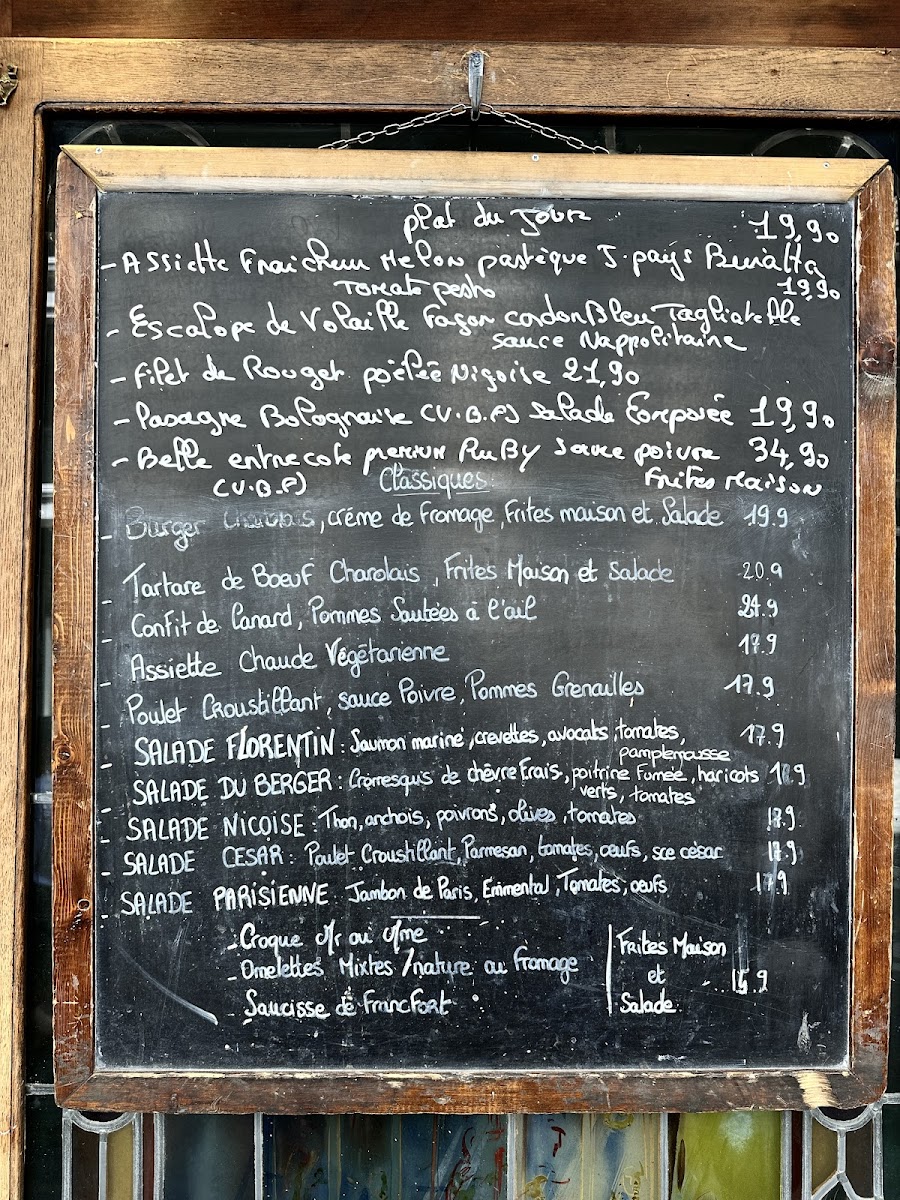 plat du Jour
19,90
- Assiette Fraicheur Melon pastèque J. pays Buratta
Tomate pesto 19,90
- Escalope de Volaille façon cordon Bleu Tagliatelle
sauce Nappolitaine
- Filet de Rouget poêlée Niçoise 21,90
- Lasagne Bolognaise (V.B.F) Salade Composée 19,90
- Belle entrecote premium RuBy Sauce poivre 34,90
(V.B.F) Frites Maison
Classiques:
- Burger , créme de Fromage, Frites maison et Salade 19.9
- Tartare de Boeuf Charolais, Frites Maison et Salade 20.9
- Confit de Canard, Pommes Sautées à l'ail
- Assiette Chaude Végétarienne 17.9
- Poulet Croustillant, sauce Poivre, Pommes Grenailles 17.9
- SALADE FLORENTIN: Saumon mariné, crevettes, avocats, tomates, 17.9
pamplemousse
- SALADE DU BERGER: Cromesquis de chèvre Frais, poitrine Fumée, haricots
verts, tomates
- SALADE NICOISE: Thon, anchois, poivrons, olives, tomates
- SALADE CESAR: Poulet Croustillant, Parmesan, tomates, oeufs, sce césar
- SALADE PARISIENNE Jambon de Paris, Emmental, Tomates, oeufs 17.9
- Croque M/r ou M/me
- Omelettes Mixtes /nature ou Fromage
Saucisse de FrancFort
Frites Maison
et
Salade